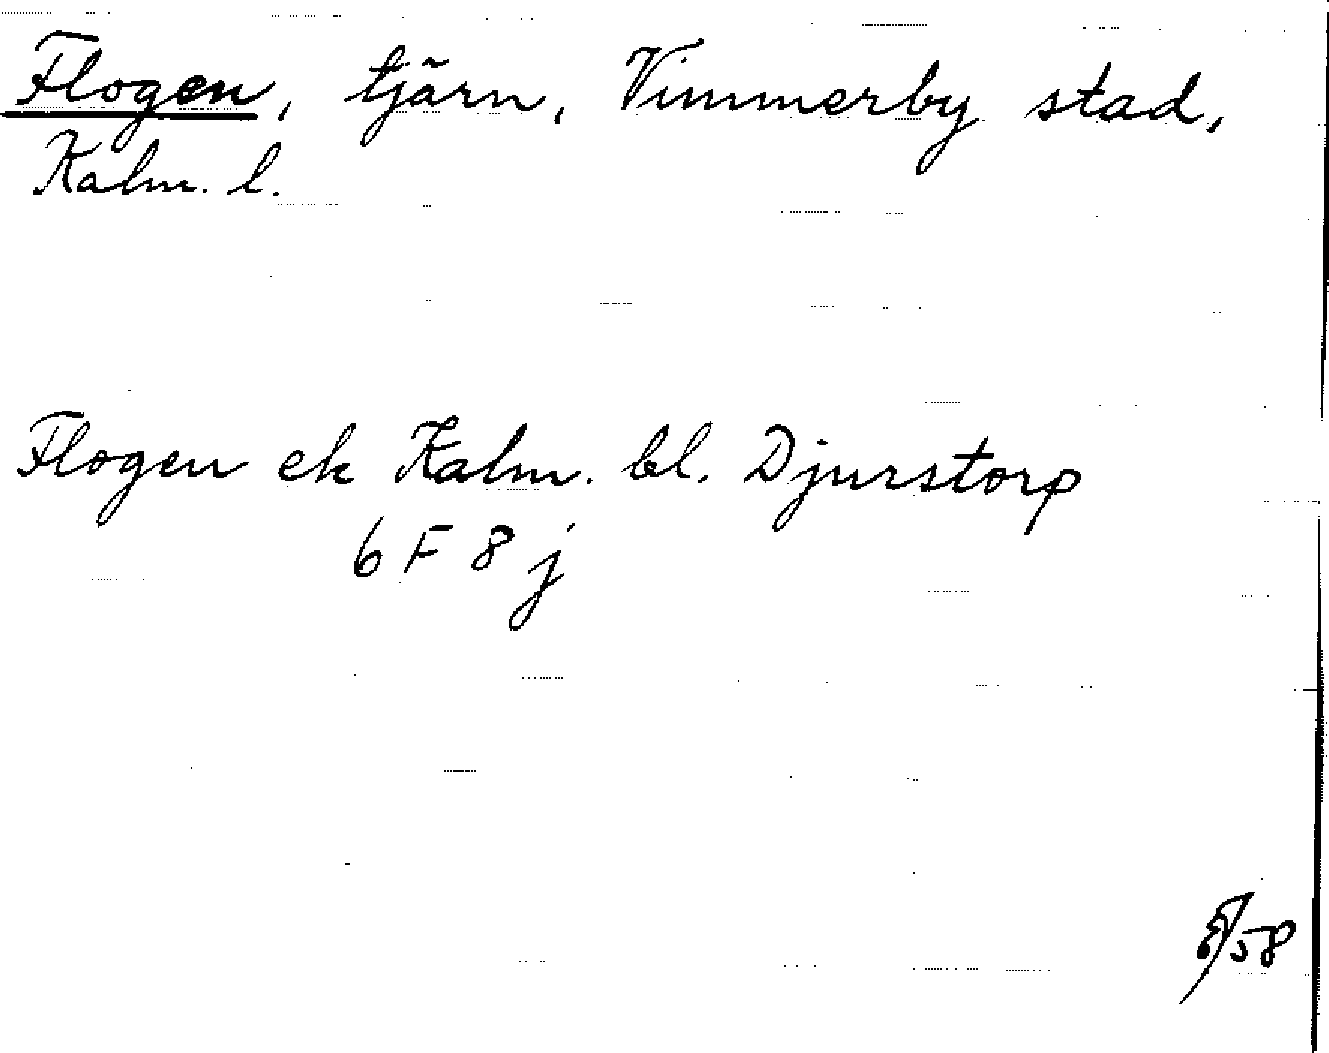 Flogen, tjärn, Vimmerby stad,
Kalm. l.
Flogen ek Kalm. bl. Djurstorp
6 F 8 j
/58